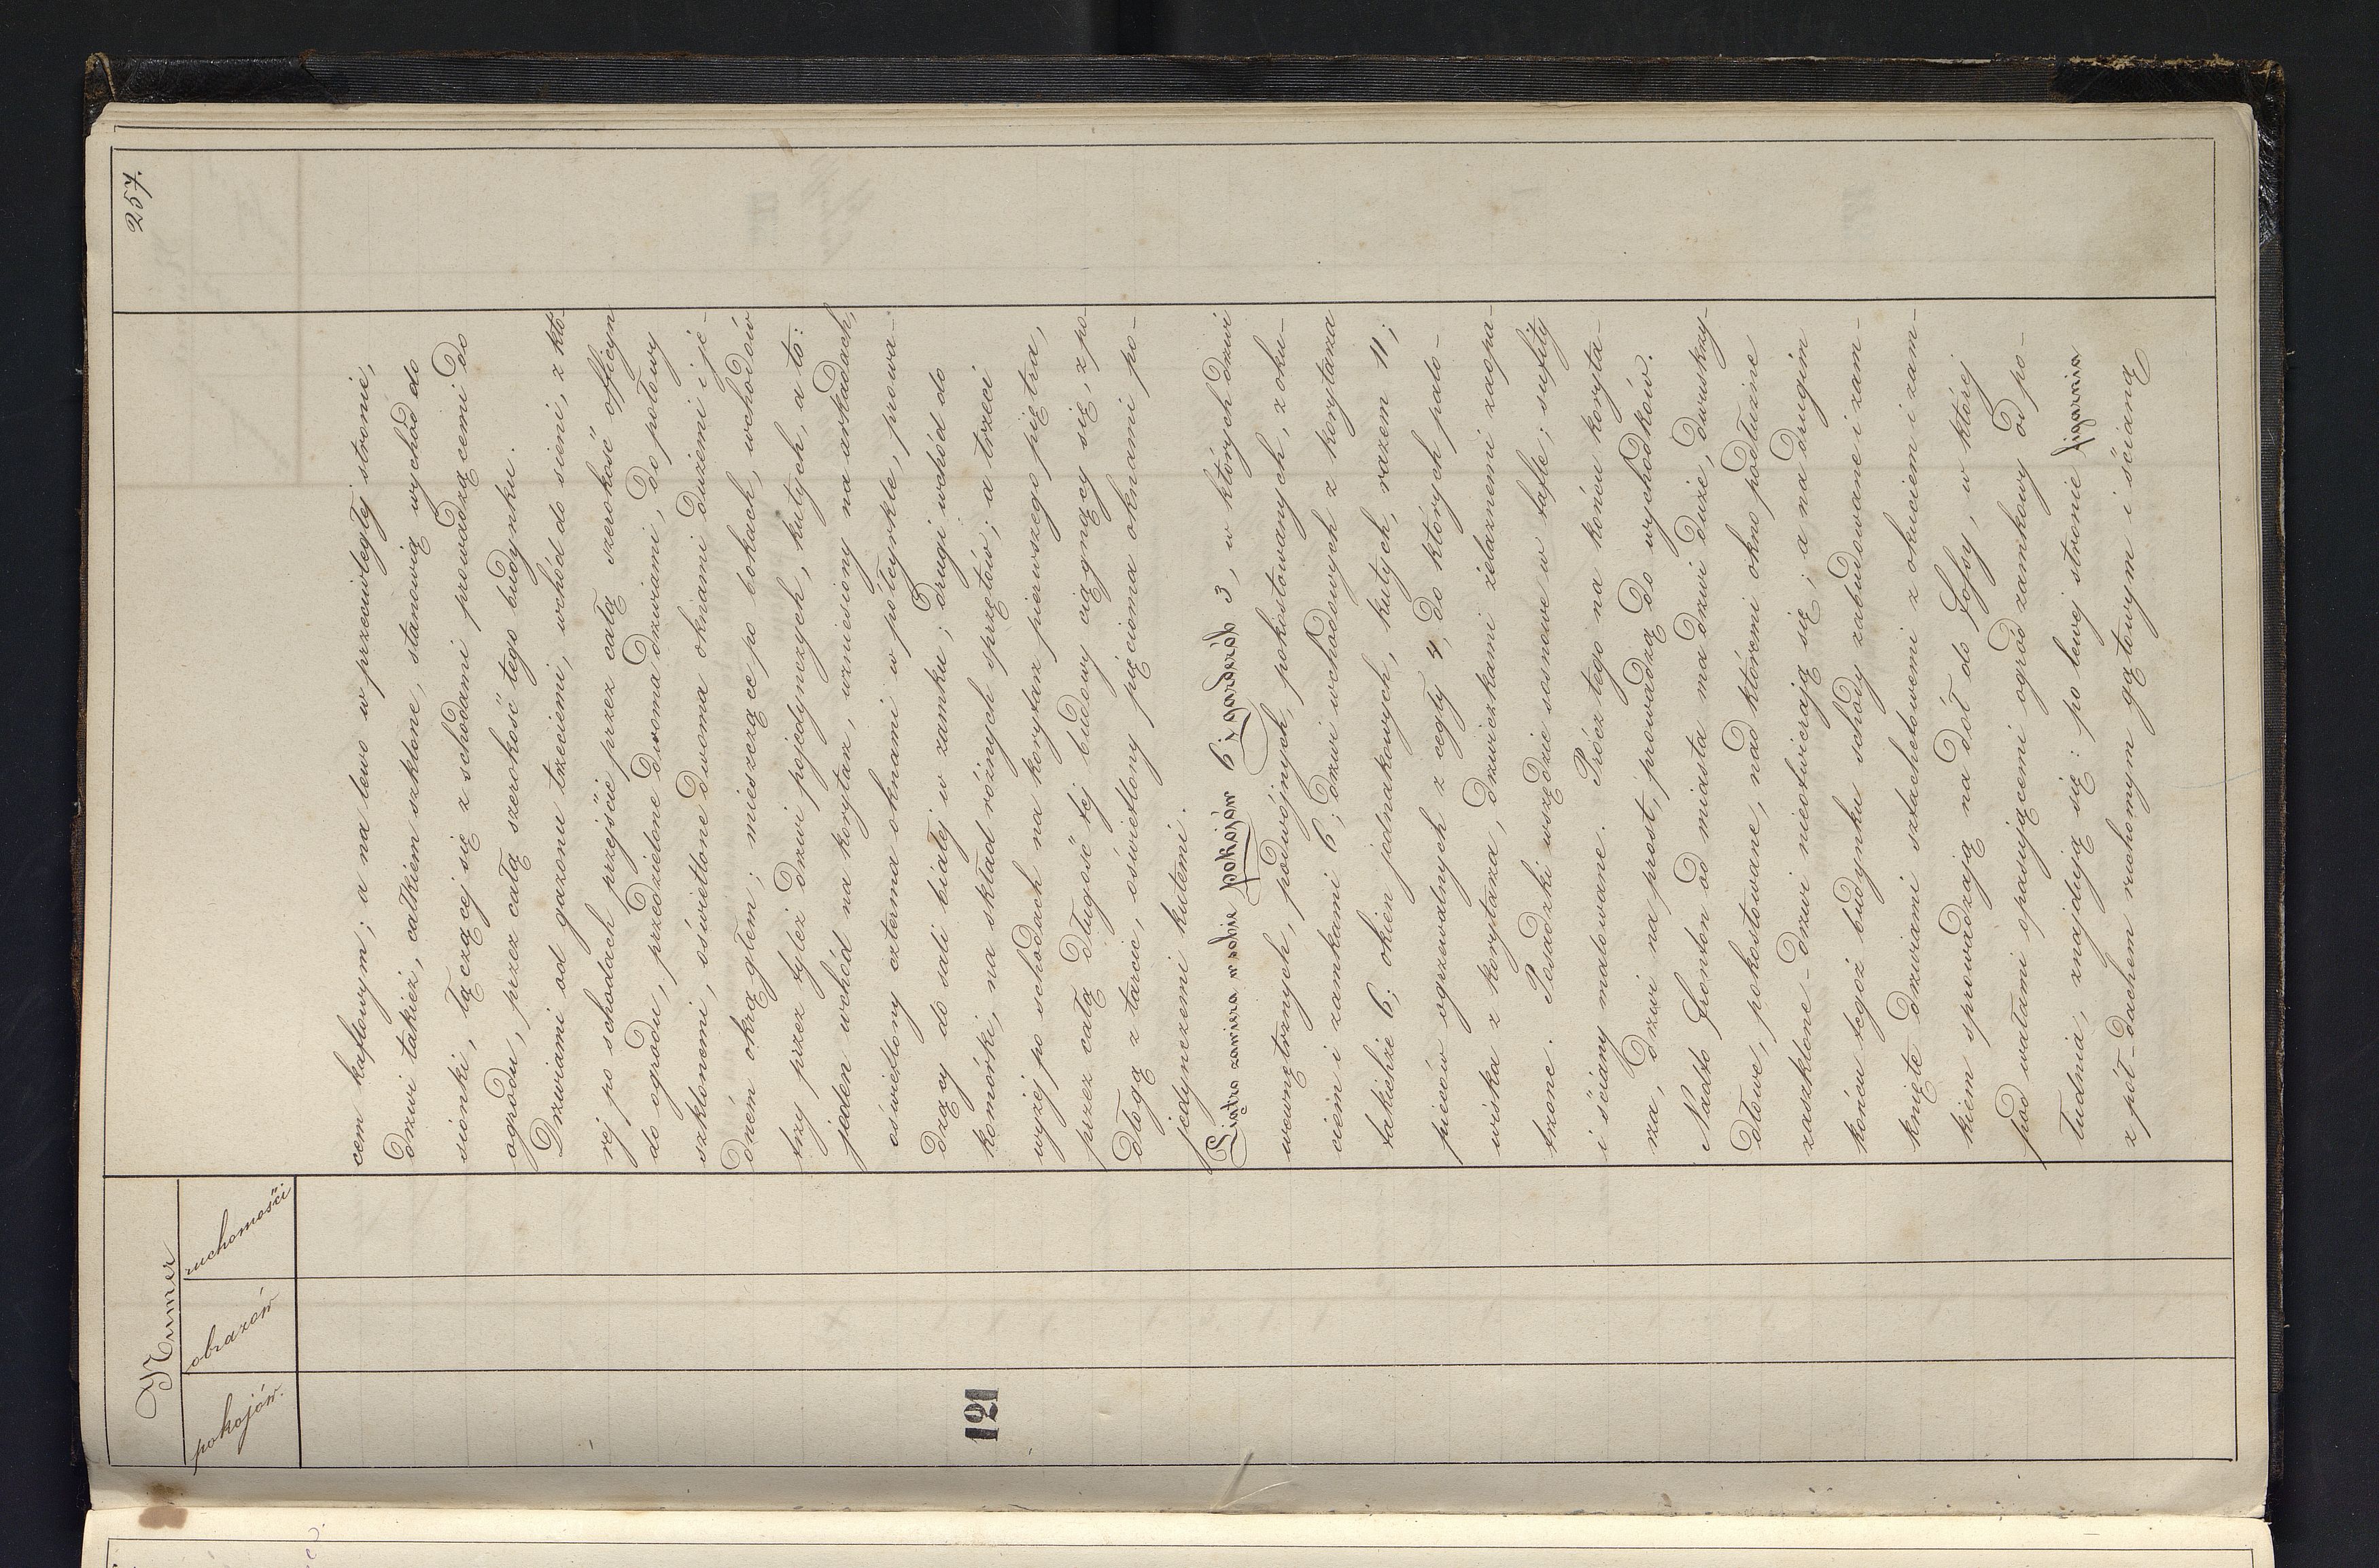 257.
Numer
pokojów.
obrazów
ruchomości
cem kaflowym; a na lewo w przeciwległej stronie,
drzwi takież, całkiem szklone, stanowią wychód do
sionki, łączącej się z schodami prowadzącemi do
ogrodu, przez całą szerokość tego budynku.
Drzwiami od gazonu trzeciemi, wchód do sieni, z któ-
rej po schodach przejście przez całą szerokość officyn
do ogrodu, przedzielone dwoma drzwiami, do połowy
szklonemi, oświetlone dwoma oknami dużemi i je-
dném okrągłem; mieszczące po bokach, wchodów
trzy przez tyleż drzwi pojedynczych, kutych, a to:
jeden wchód na korytarz, wzniesiony na arkadach,
oświetlony czterma oknami w półcyrkle, prowa-
dzący do sali białej w zamku; drugi wchód do
komórki, na skład różnych sprzętów; a trzeci
wyżej po schodach na korytarz pierwszego piętra,
przez całą długość tej budowy ciągnący się, z po-
dłogą z tarcic, oświetlony pięcioma oknami po-
jedynczemi kutemi.
Piątro zawiera w sobie pokojów 6 i garderób 3, w których drzwi
wewnętrznych, podwójnych, pokostowanych, z oku-
ciem i zamkami 6; drzwi wchodowych z korytarza
takichże 6; okien jednakowych, kutych, razem 11;
pieców ogrzewalnych z cegły 4, do których palo-
wiska z korytarza, drzwiczkami żelaznemi zaopa-
trzone. Posadzki wszędzie sosnowe w tafle; sufity
i ściany malowane. Prócz tego na końcu koryta-
rza, drzwi na prost, prowadzą do wychodków.
Nadto fronton od miasta ma drzwi duże, dwuskrzy-
dłowe, pokostowane, nad któremi okno podłużne
zaszklone - drzwi nieotwierają się; a na drugim
końcu tegoż budynku schody zabudowane i zam-
knięte drzwiami sztachetowemi z okuciem i zam-
kiem sprowadzają na dół do fossy, w której
pod wałami opasującemi ogród zamkowy od po-
łudnia, znajdują się: po lewej stronie figarnia
z pół-dachem ruchomym gątowym i ścianą
121